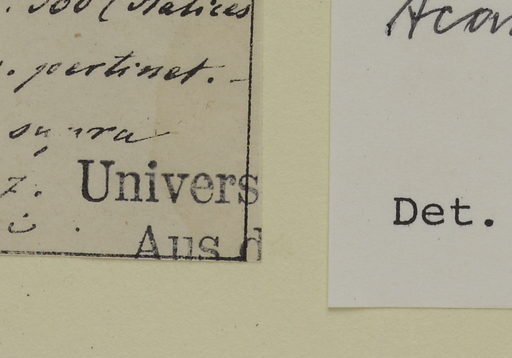 . 300 (Statices
. pertinet. -
supra
z. Univers
Aus d
Acan
Det.